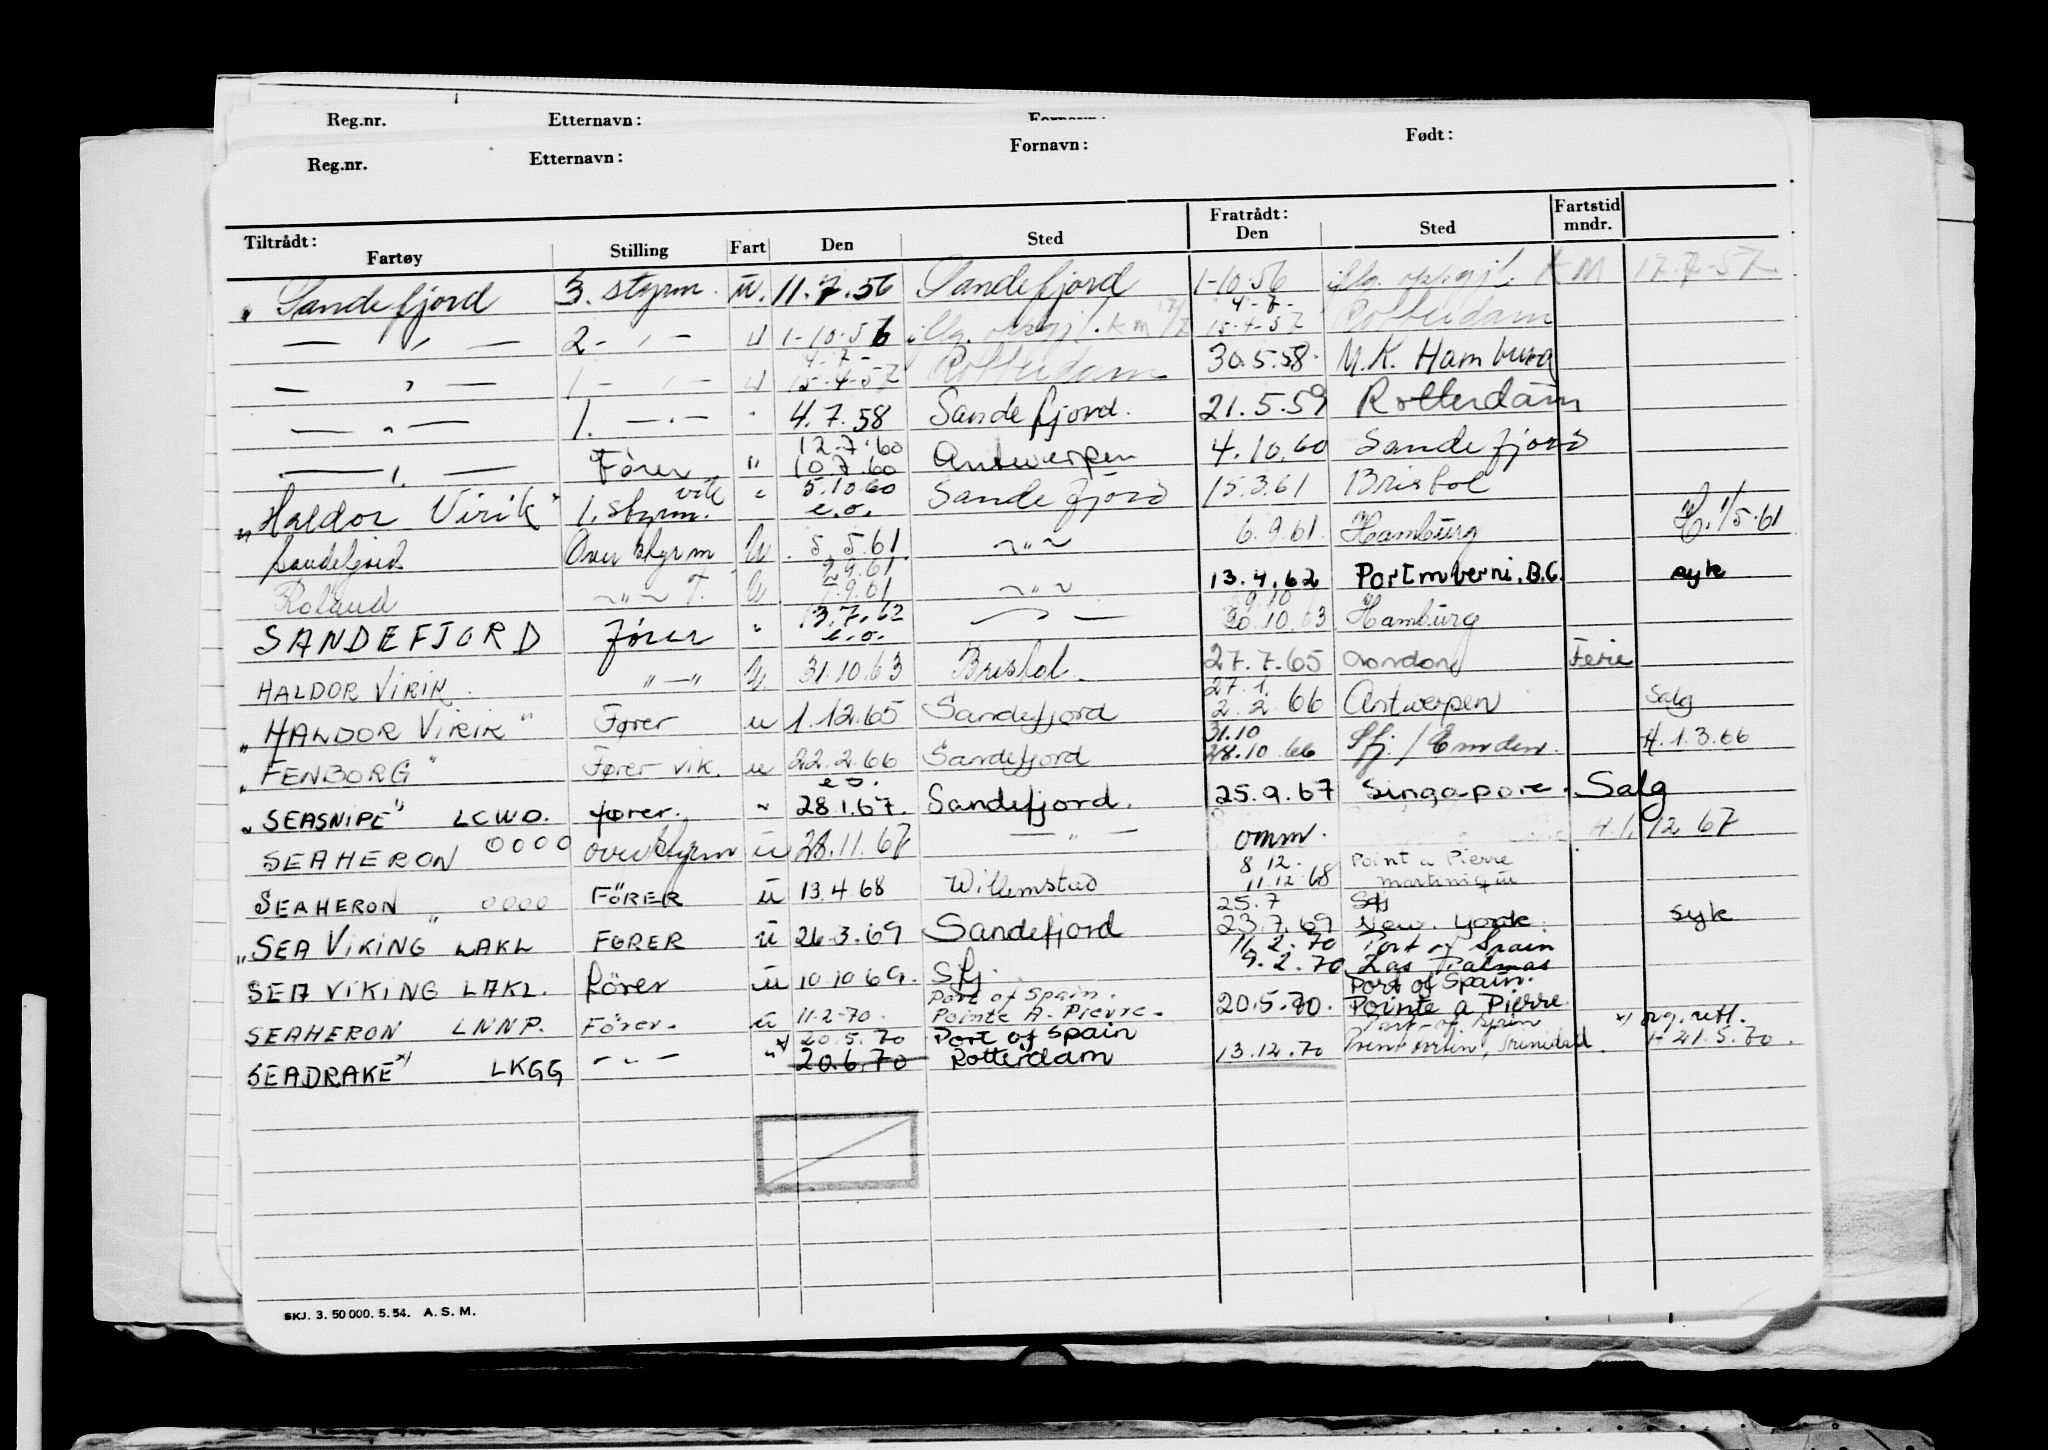 Reg.nr. Etternavn: Fornavn:
Reg.nr. Etternavn: Fornavn: Født:
Tiltrådt: Fratrådt: Fartstid mndr.
Fartøy Stilling Fart Den Sted Den Sted
" Sandefjord 3. styrm. u. 11.7.56 Sandefjord 1-10.56 iflg. KM 17.7-57
— " — 2 - " - u 1-10-56 iflg. KM 17/7 4-7- 15-4-57 Rotterdam
— " — 1 - " - u 4-7- 15-4-57 Rotterdam 30.5.58 M.K. Hamburg
— " — 1. — " — " 4.7.58 Sandefjord. 21.5.59 Rotterdam
— " — Fører " 12-7-60 10.7.60 Antwerpen 4.10.60 Sandefjord
"Haldor Virik" 1. styrm. vik " 5.10.60 e.o. Sandefjord 15.3.61 Bristol
Sandefjord Overstyrm U. 5.5.61 ~ " ~ 6.9.61. Hamburg H. 1/5.61
Roland ~ " ~ T. U. 7.9.61 ~ " ~ 13.4.62 B.C. syk
SANDEFJORD fører " 13.7.62 e.o. — " — 9.10 30.10.63 Hamburg
HALDOR VIRIK " — " U. 31.10.63 Bristol 27.7.65 London Ferie
"HALDOR VIRIK" Fører u 1.12.65 Sandefjord 27.1. 2.2.66 Antwerpen Salg
"FENBORG" Fører vik. u 22.2.66 e.o. Sandefjord 31.10 28.10.66 Sfj. / Emden. H.1.3.66
"SEASNIPE" LCWO. fører. " 28.1.67. Sandefjord. 25.9.67 Singapore. Salg
SEAHERON 0000 overstyrm u 28.11.67 — " — omm. H.1.12.67
SEAHERON " 0000 FÖRER u 13.4.68 Willemstad 8.12. 11.12.68 Point a Pierre Martinique
"SEA VIKING" LAKL FØRER u 26.3.69 Sandefjord 25.7 23.7.69 Sfj New York. syk
SEA VIKING LAKL. fører u 10.10.69. Sfj. 11.2.70 9.2.70 Port of Spain Las Palmas
SEAHERON LNNP. Fører. u 11.2.70. Port of Spain. Pointe A. Pierre. 20.5.70. Port of Spain. Pointe a Pierre.
SEADRAKE x) LKGG — " — " x) 20.5.70 20.6.70 Port of Spain Rotterdam 13.12.70 Port of Spain Trinidad. x) org. rett. H 21.5.70.
SKJ. 3. 50 000. 5. 54. A. S. M.